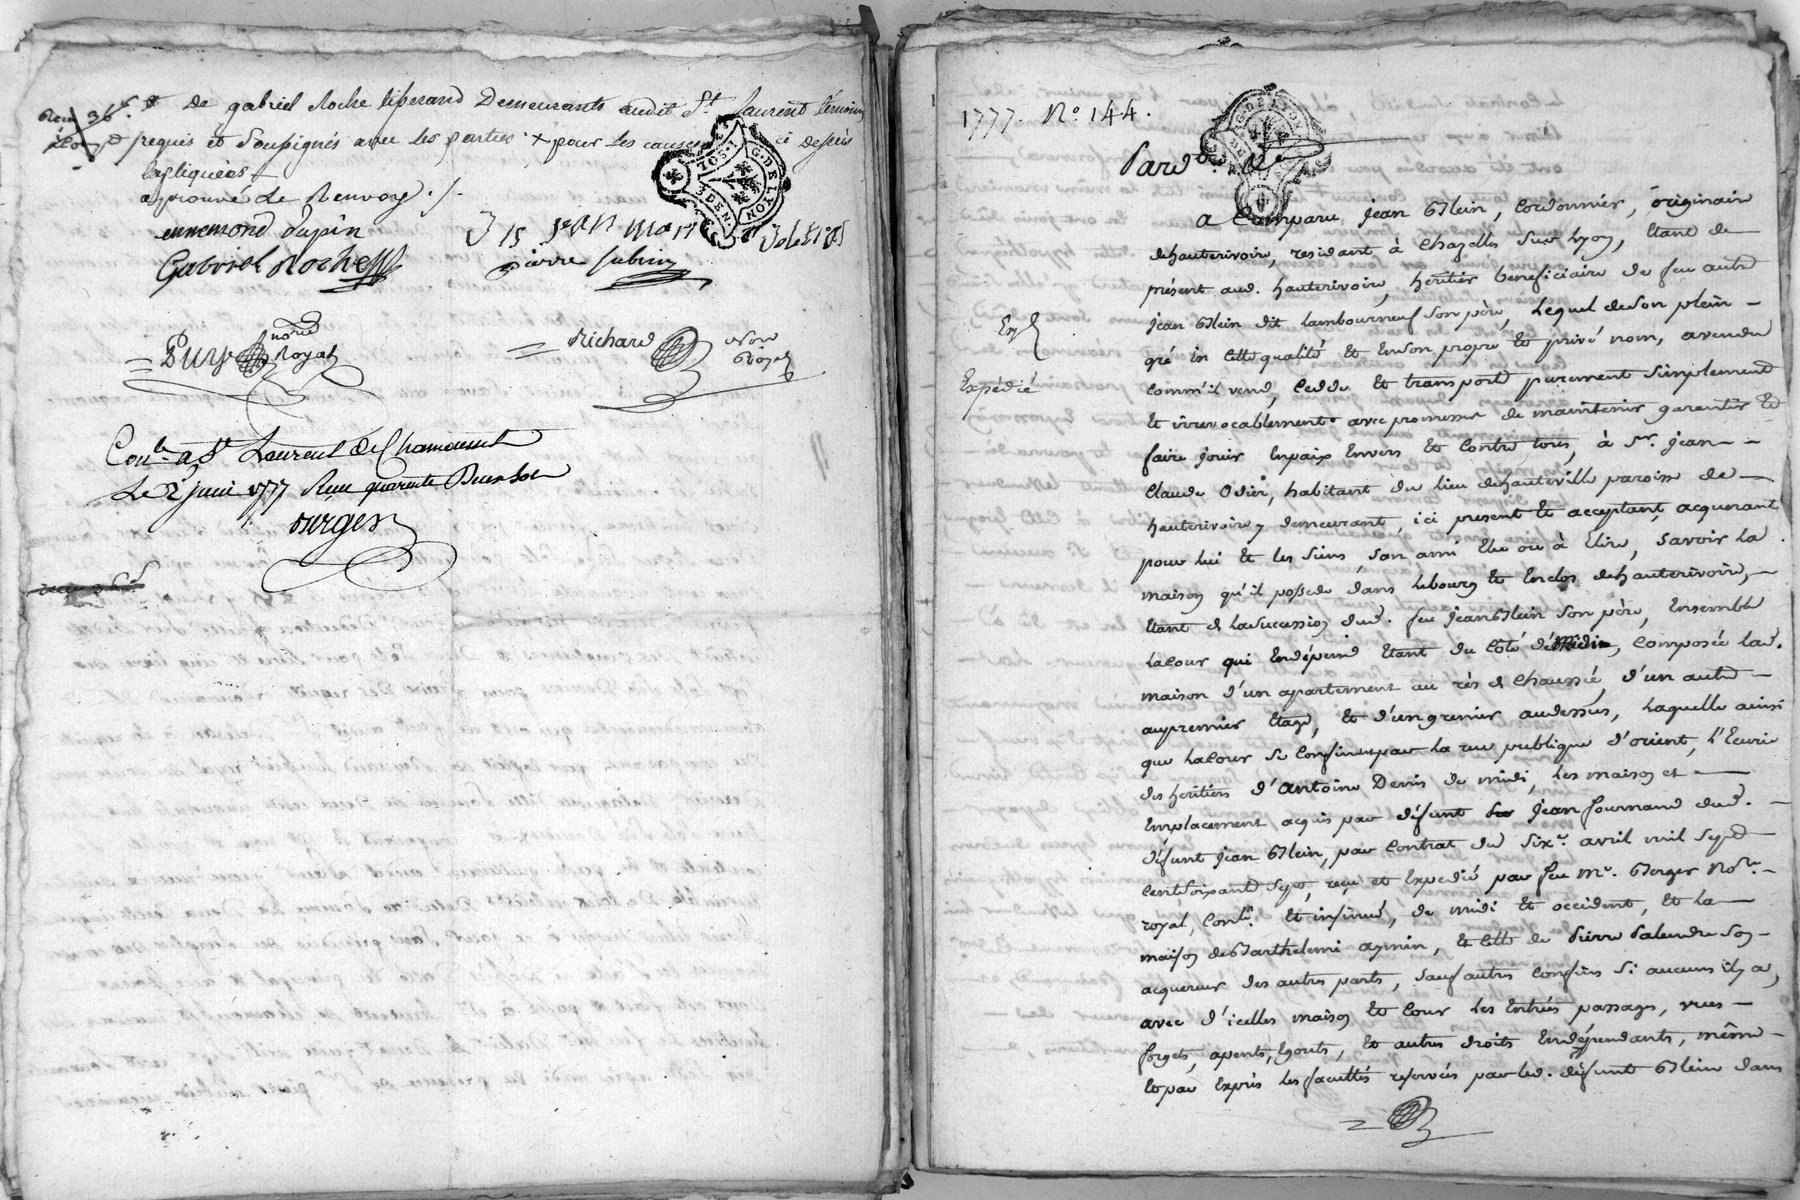 & de gabriel Roche tisserand Demeurants audit St Laurent témoins
requis et soussignés avec les parties + pour les causes ci dessus
Expliquées
approuvé le Renvoy
ennemond dupin
Gabriel Roche
pierre subrin
notre
Royal
Richard
Nore
Royal
Conlé. a St Laurent de Chamousset
Le 2 juin 1777 Reçu quarente
Durges
G. DE LYON
1. SOL
DEN.
1777. No. 144.
Pardt. Le
G. DE LYON
a Comparu jean Blein, Cordonnier, originair
dehauterivoire, residant à Chazelles sur Lyon, Etant de
présent aud. hauterivoire, héritier beneficiaire de feu autre
jean Blein dit Lambourneuf son père, Lequel deson plein
Exp
gré in Cette qualité Et Enson propre Et privé nom, avendu
Comm'il vend, Cedde Et transporte purement simplement
Expédié
Et irrevocablement avec promesse de maintenir garentir Et
faire jouir Enpaix Envers Et Contre tous, à Sr. jean
Claude Odier, habitant du lieu dehauteville paroisse de
hauterivoire y demeurant, ici présent Et acceptant, acquerant
pour lui Et les siens, son ami Elu ou à Elire, savoir La
maison qu'il possede dans Lebourg Et Enclos dehauterivoire,
Etant de Lasuccession dud. feu jean Blein son père, Ensemble
Lacour qui Endépend Etant du Côté de Midi, Composée Lad.
maison d'un apartement au rès de Chaussée, d'un autre
aupremier Etage, Et d'un grenier audessus, Laquelle ainsi
que Lacour se Confinent par La rue publique d'orient, L'Ecurie
des héritiers d'Antoine Denis de midi, Les maison et
Emplacement acquis par défunt jean fournand dud.
défunt jean Blein, par Contrat du Sixe. avril mil sept
Centsoixante Sept, reçu et Expedié par feu Me. Berger Nore.
royal, Conlé. Et insinué, de midi Et occident, Et La
maison de Barthelemi aymin, Et Celle de Pierre Palandre son
acquereur des autres parts, Sauf autres Confins si aucuns il y a,
avec d'icelles maison Et Cour Les Entrées passage, vues
forgets, apents, Egouts, Et autres droits Endépendants, même
Et par Exprès Les facultés reservées par led. défunt Blein dans